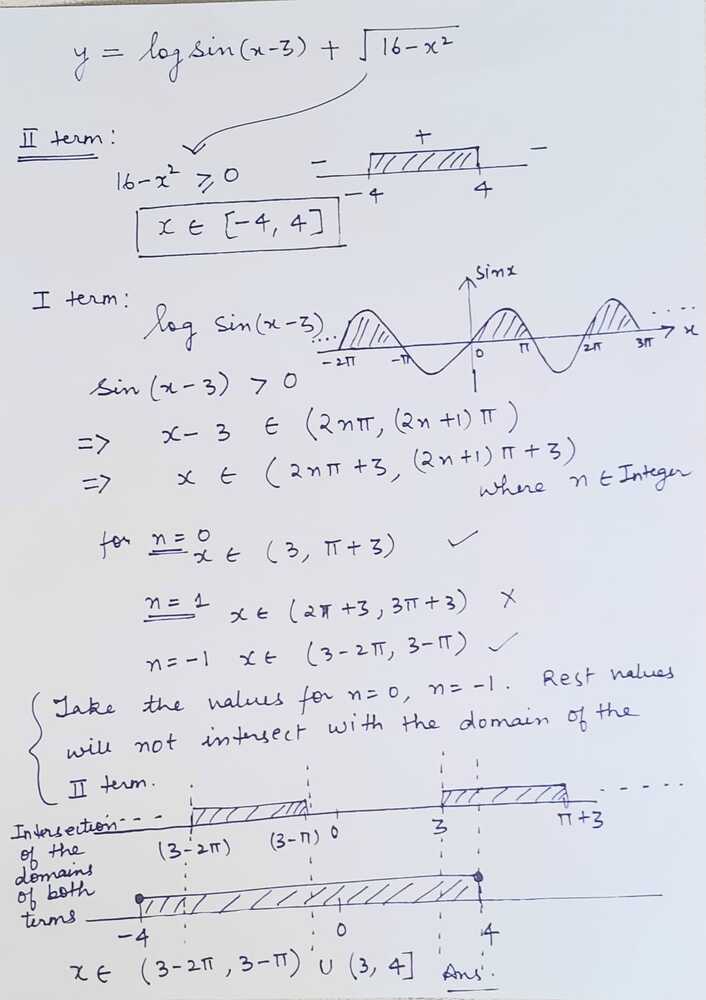 y = log sin(x-3) + √16-x²
II term:
16-x² ⩾ 0
- + -
-4 4
x ∈ [-4, 4]
I term:
log sin(x-3)
sinx
..... -2π -π 0 π 2π 3π ..... x
sin (x-3) > 0
=> x-3 ∈ (2nπ, (2n+1)π)
=> x ∈ (2nπ+3, (2n+1)π+3)
where n ∈ Integer
for n = 0
x ∈ (3, π+3) ✓
n = 1 x ∈ (2π+3, 3π+3) ×
n = -1 x ∈ (3-2π, 3-π) ✓
Take the values for n=0, n=-1. Rest values
will not intersect with the domain of the
II term.
Intersection
of the
domains
of both
terms
(3-2π) (3-π) 0 3 π+3
-4 0 4
x ∈ (3-2π, 3-π) ∪ (3, 4] Ans.